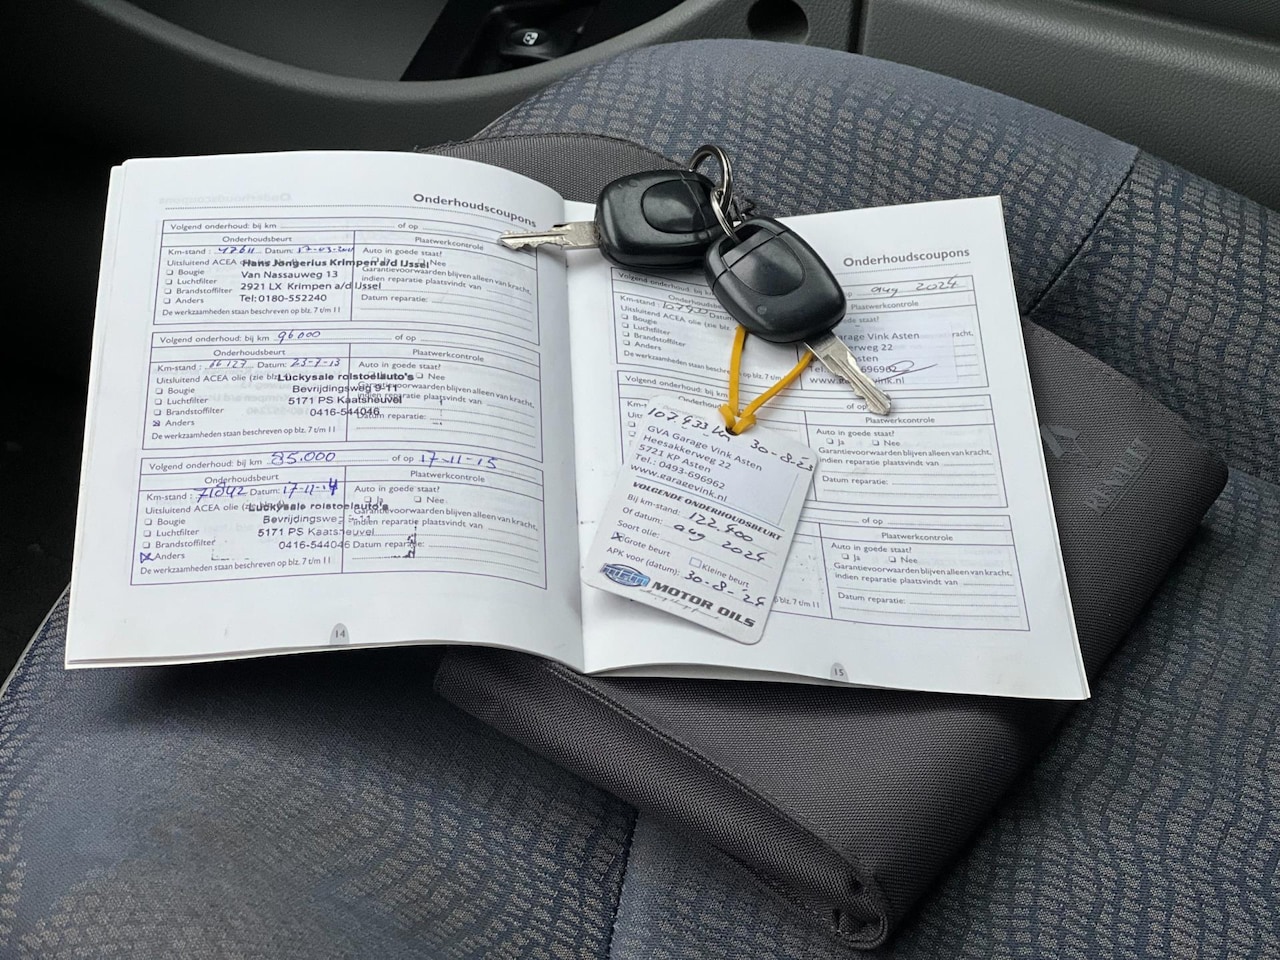 Onderhoudscoupons
Volgend onderhoud: bij km of op
Onderhoudsbeurt Plaatwerkcontrole
Km-stand : 47611 Datum: Auto in goede staat?
Uitsluitend ACEA Nee
Hans Jongerius Krimpen a/d IJssel
Bougie Van Nassauweg 13 Garantievoorwaarden blijven alleen van kracht,
Luchtfilter 2921 LX Krimpen a/d IJssel indien reparatie plaatsvindt van
Brandstoffilter Tel: 0180-552240
Anders Datum reparatie:
De werkzaamheden staan beschreven op blz. 7 t/m 11
Volgend onderhoud: bij km 96000 of op
Onderhoudsbeurt Plaatwerkcontrole
Km-stand : 66127 Datum: 23-7-13 Auto in goede staat?
Uitsluitend ACEA olie (zie Luckysale rolstoelauto's Nee
Bougie Bevrijdingsweg 9-11
Luchtfilter 5171 PS Kaatsheuvel
Brandstoffilter 0416-544046
Anders Datum reparatie:
De werkzaamheden staan beschreven op blz. 7 t/m 11
Volgend onderhoud: bij km 85.000 of op 17-11-15
Onderhoudsbeurt Plaatwerkcontrole
Km-stand : 71042 Datum: 17-11-14 Auto in goede staat?
Uitsluitend ACEA olie Ja Nee
Luckysale rolstoelauto's
Bougie Garantievoorwaarden blijven alleen van kracht,
Luchtfilter 5171 PS Kaatsheuvel indien reparatie plaatsvindt van
Brandstoffilter 0416-544046 Datum reparatie:
Anders
De werkzaamheden staan beschreven op blz. 7 t/m 11
14
Onderhoudscoupons
Volgend onderhoud: bij aug 2024
Plaatwerkcontrole
Km-stand : staat?
Uitsluitend ACEA olie (zie
Bougie Garage Vink Asten kracht,
Luchtfilter kerweg 22
Brandstoffilter Asten
Anders 696962
De werkzaamheden staan www.garagevink.nl
blz. 7 t/m 11
Volgend onderhoud: of op
Plaatwerkcontrole
Auto in goede staat?
Ja Nee
Garantievoorwaarden blijven alleen van kracht,
indien reparatie plaatsvindt van
Datum reparatie:
of op
Plaatwerkcontrole
Auto in goede staat?
Ja Nee
Garantievoorwaarden blijven alleen van kracht,
indien reparatie plaatsvindt van
Datum reparatie:
blz. 7 t/m 11
15
107.433 km 30-8-23
GVA Garage Vink Asten
Heesakkerweg 22
5721 KP Asten
Tel.: 0493-696962
www.garagevink.nl
VOLGENDE ONDERHOUDSBEURT
Bij km-stand: 122.400
Of datum: aug 2024
Soort olie:
Grote beurt Kleine beurt
APK voor (datum): 30-8-24
MPM MOTOR OILS